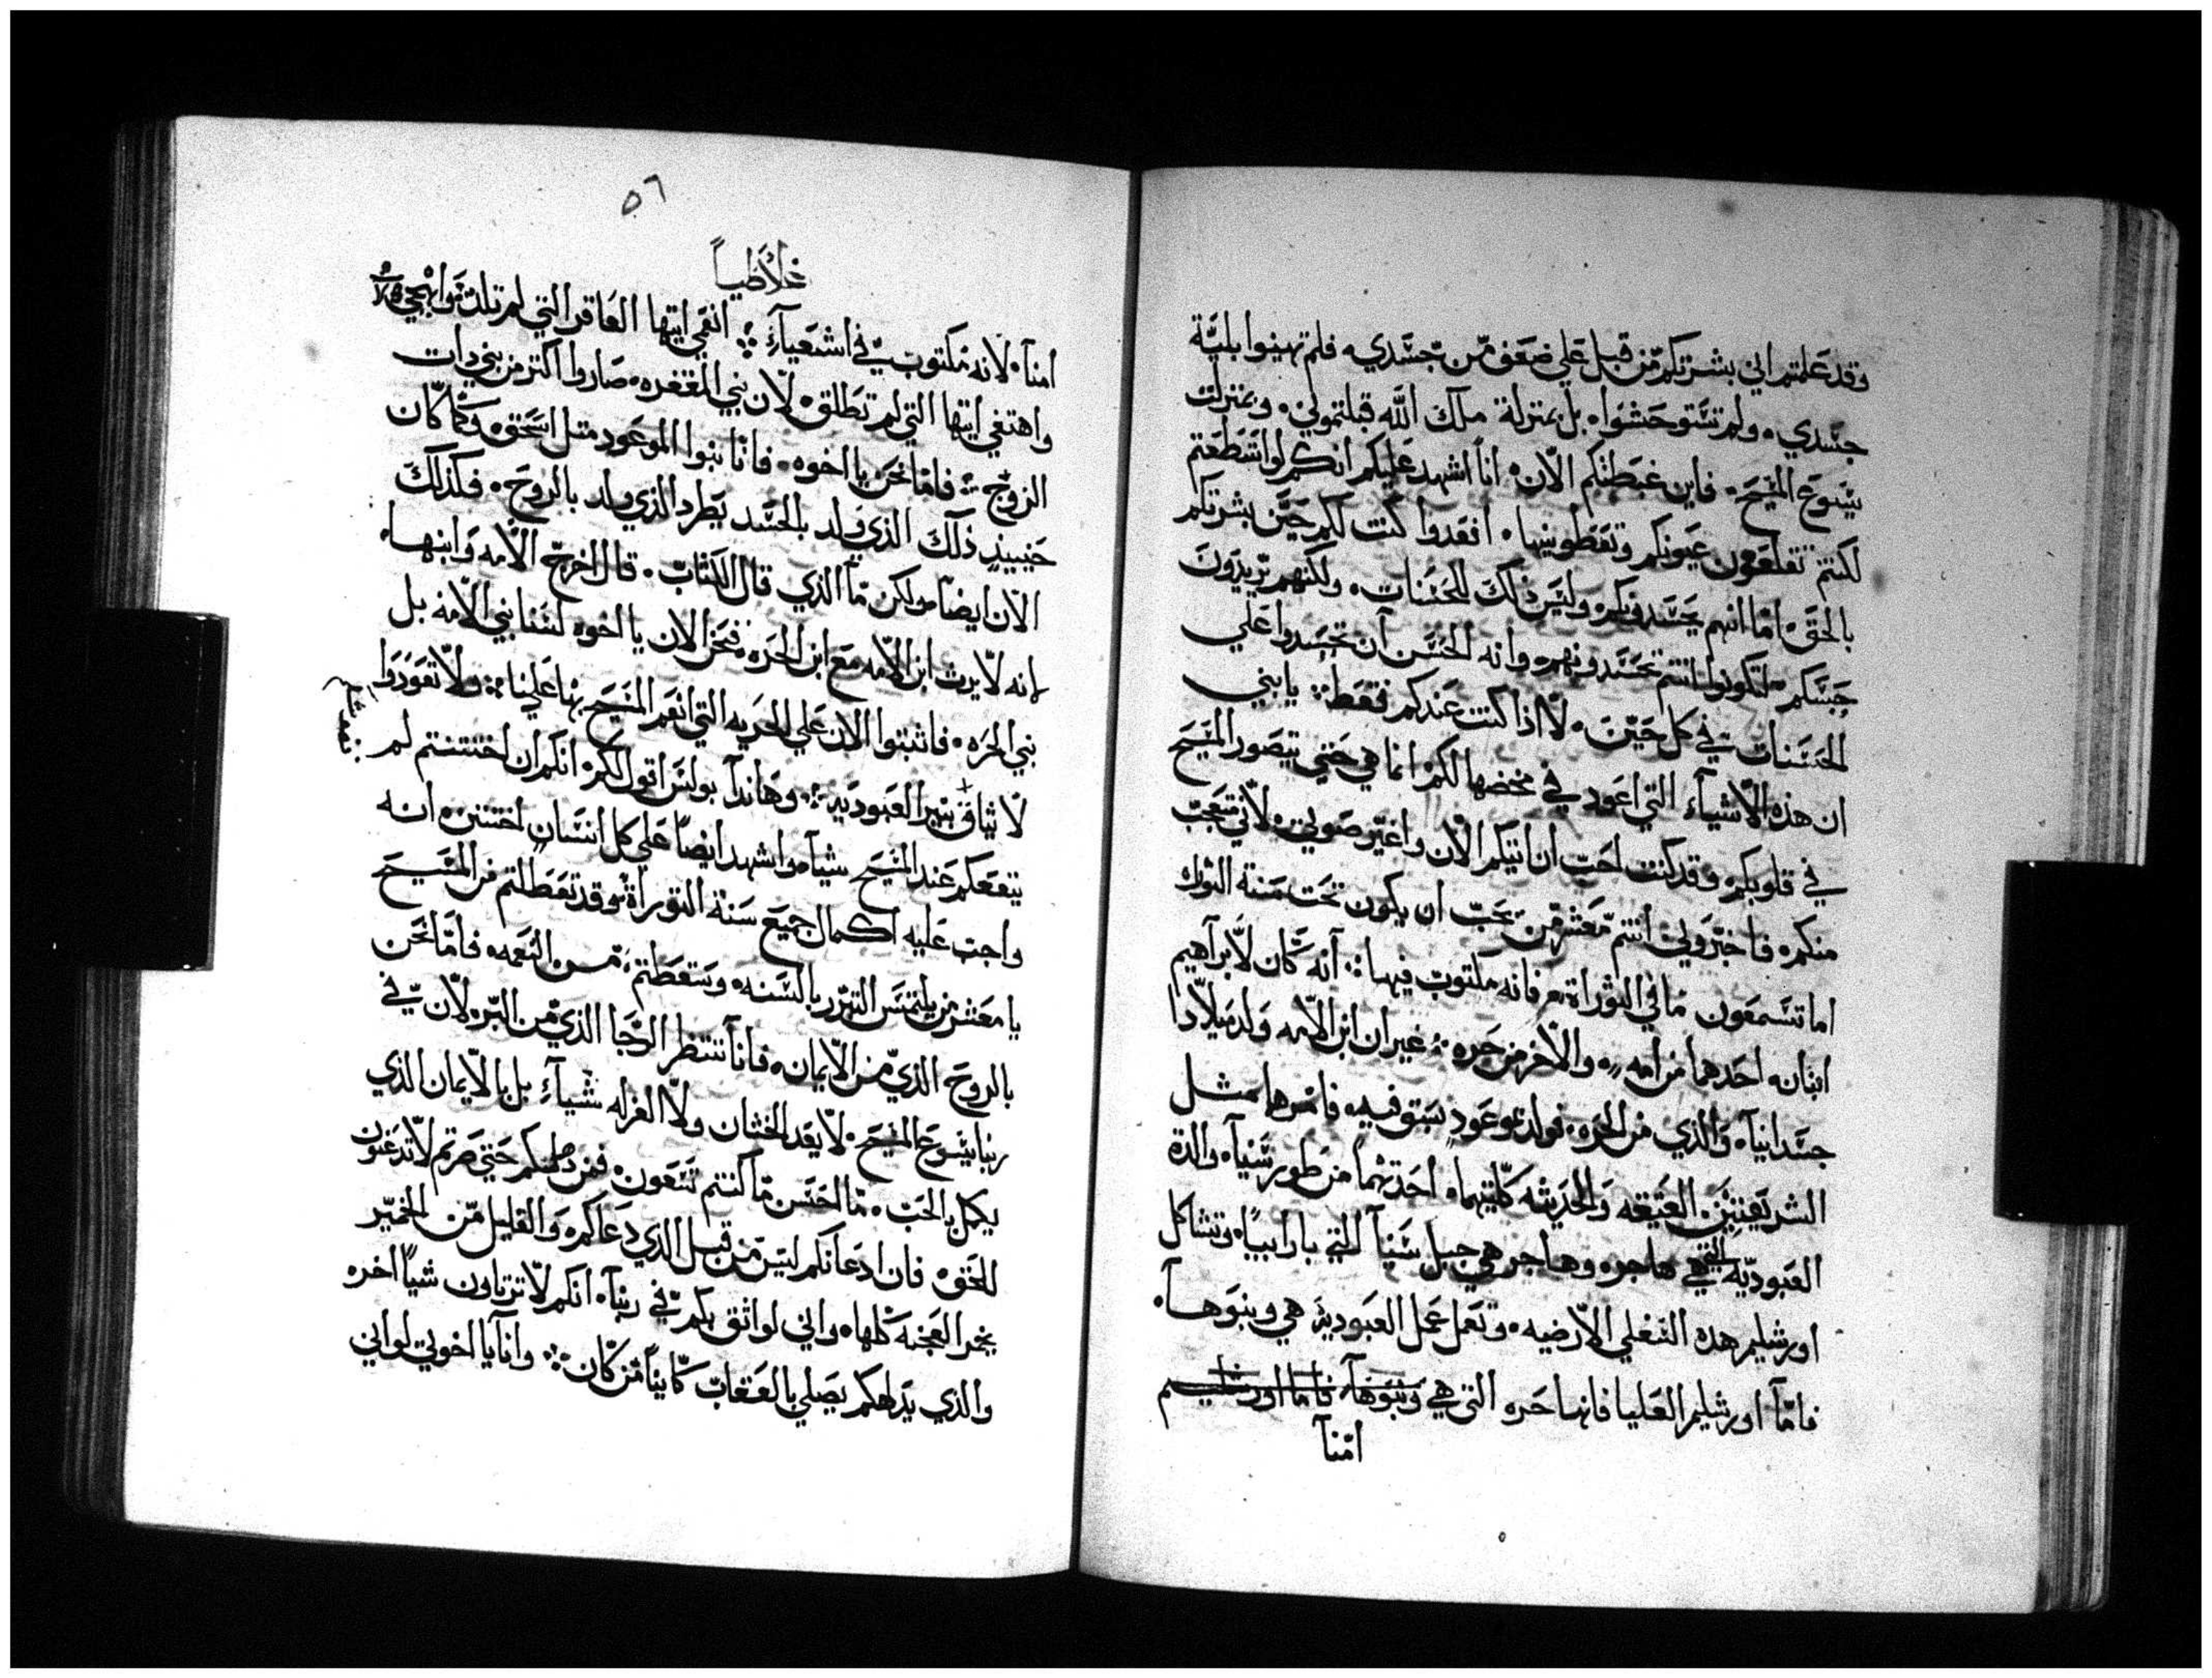 وقد علمتم اني بشرتكم من قبل علي ضعف من جسدي، فلم تهينوا بليّة
جسدي، ولم تستوحشوا، بل بمنزلة ملاك الله قبلتموني، وبمنزلت
يسوع المسيح، فاين غبطتكم الان، انا اشهد عليكم انكم لو استطعتم
لكنتم تقلعون عيونكم وتعطونيها، افعدوا كنت لكم حين بشرتكم
بالحق، اما انهم يحسدونكم، وليس ذلك للحسنات، ولكنهم يريدون
لتكونوا انتم تحسدونهم، وانه لحسن ان تحسدوا علي
الحسنات في كل حين، لا اذا كنت عندكم فقط، يا بني
ان هذه الاشياء التي اعود في مخضها لكم انما هي حتي يتصور المسيح
في قلوبكم، وقد كنت احب ان اتيكم الان واغير صوتي، لاني متعجب
منكم، فاخبروني انتم معشر من يحب ان يكون تحت سنة التوراه
اما تسمعون ما في التوراة، فانه مكتوب فيها: انه كان لابراهيم
ابنان، احدهما من امه، والاخر من حره، غير ان ابن الامه ولد ميلادا
جسدانيا، والذي من الحره، فولد سبق فيه، فامرهما مثل
الشريعتين، العتيقه والحديثه كلتيهما، احدتهما من طور سينا، والدة
العبوديّه التي هي هاجر، وهاجر هي جبل سينا التي بارابيا، وتشاكل
اورشليم هده السفلي الارضيه، وتعمل عمل العبودية هي وبنوها،
فامّا اورشليم العليا فانها حره التي هي وبنوها فاما اورشليم
امّنا
٥٦
غلاطيا
امنا، لانه مكتوب في اشعياء: انعمي ايتها العاقر التي لم تلد، وابهجي
واهتفي ايتها التي لم تطلق، لان بني المقفره، صاروا اكتر من بني دات
الزوج: فاما نحن يا اخوه، فانا بنوا الموعود متل اسحق، وكما كان
حينيذ ذلك الذي ولد بالجسد يطرد الذي ولد بالروح، فكذلك
الان ايضا، ولكن ما الذي قال الكتاب، قال اخرج الامه وابنها،
لانه لا يرث ابن الامه مع ابن الحره، فنحن الان يا اخوه لسنا بني الامه بل
بني الحره، فاتبتوا الان علي الحريه التي انعم المسيح بها علينا: ولا تعودوا
بنير العبوديه: وهاندا بولس اقول لكم، انكم ان اختتنتم لم
ينفعكم عند المسيح شيا، واشهد ايضا علي كل انسان اختتن، انه
واجب عليه اكمال جميع سنة التوراة، وقد تعطلتم من المسيح
يا معشر من يلتمس التبرر بالسنه، وسقطتم من النعمه، فاما نحن
بالروح الذي من الايمان، فانا ننتظر الرجا الذي من البر، لان في
ربنا يسوع المسيح، لا يعد الختان ولا الغرله شياء، بل بالايمان الذي
يكمل بالحب، ما احسن ما كنتم تسعون، فمن حتي صرتم لا تدعنون
للحق، فان ادعانكم ليس من قبل الذي دعاكم، والقليل من الخمير
يخمر العجنه كلها، واني لواثق بكم في ربنا، انكم لا ترتاون شيا اخر،
والذي يدلهكم يصلي بالعقاب كاينا من كان، وانا يا اخوتي لو اني